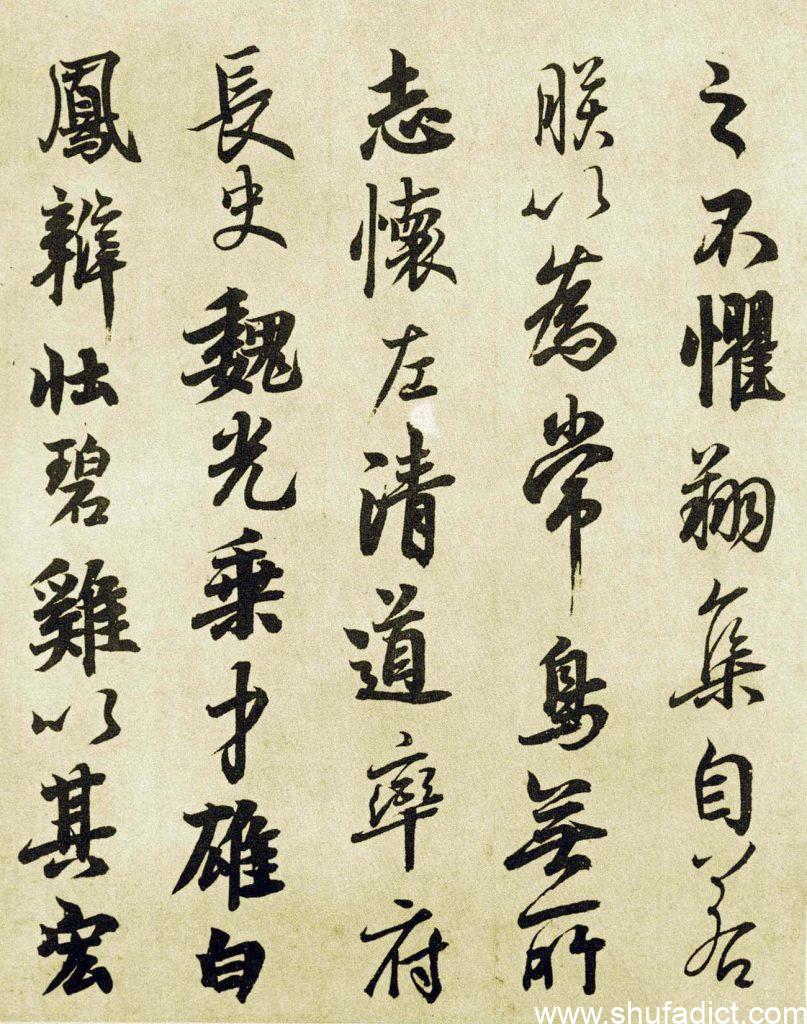 之不懼翔集自若
朕以為常鳥無所
志懷左清道率府
長史魏光乘才雄白
鳳辯壯碧雞以其宏
www.shufadict.com